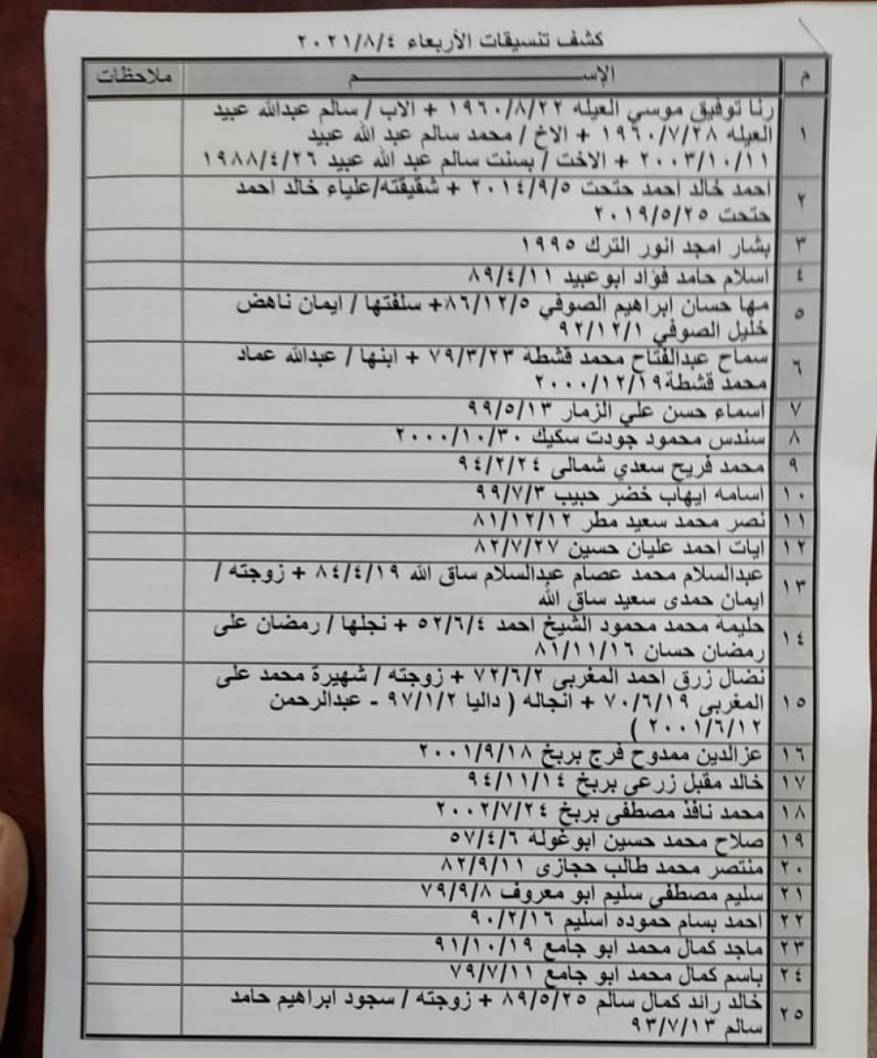 كشف تنسيقات الأربعاء ٢٠٢١/٨/٤
م الإســـــــم ملاحظات
١ رنا توفيق موسي العيله ١٩٦٠/٨/٢٢ + الاب / سالم عبدالله عبيد
العيله ١٩٦٠/٧/٢٨ + الاخ / محمد سالم عبد الله عبيد
٢٠٠٣/١٠/١١ + الاخت / بسنت سالم عبد الله عبيد ١٩٨٨/٤/٢٦
٢ احمد خالد احمد حتحت ٢٠١٤/٩/٥ + شقيقته/علياء خالد احمد
حتحت ٢٠١٩/٥/٢٥
٣ بشار امجد انور الترك ١٩٩٥
٤ اسلام حامد فؤاد ابوعبيد ٨٩/٤/١١
٥ مها حسان ابراهيم الصوفي ٨٦/١٢/٥+ سلفتها / ايمان ناهض
خليل الصوفي ٩٢/١٢/١
٦ سماح عبدالفتاح محمد قشطة ٧٩/٣/٢٣ + ابنها / عبدالله عماد
محمد قشطة٢٠٠٠/١٢/١٩
٧ اسماء حسن علي الزمار ٩٩/٥/١٣
٨ سندس محمود جودت سكيك ٢٠٠٠/١٠/٣٠
٩ محمد فريح سعدي شمالى ٩٤/٢/٢٤
١٠ اسامه ايهاب خضر حبيب ٩٩/٧/٣
١١ نصر محمد سعيد مطر ٨١/١٢/١٢
١٢ ايات احمد عليان حسين ٨٢/٧/٢٧
١٣ عبدالسلام محمد عصام عبدالسلام ساق الله ٨٤/٤/١٩ + زوجته /
ايمان حمدى سعيد ساق الله
١٤ حليمة محمد محمود الشيخ احمد ٥٢/٦/٤ + نجلها / رمضان على
رمضان حسان ٨١/١١/١٦
١٥ نضال زرق احمد المغربى ٧٢/٦/٢ + زوجته / شهيرة محمد على
المغربى ٧٠/٦/١٩ + انجاله ( داليا ٩٧/١/٢ - عبدالرحمن
٢٠٠١/٦/١٢ )
١٦ عزالدين ممدوح فرج بربخ ٢٠٠١/٩/١٨
١٧ خالد مقبل زرعى بربخ ٩٤/١١/١٤
١٨ محمد نافذ مصطفى بربخ ٢٠٠٢/٧/٢٤
١٩ صلاح محمد حسين ابوغولة ٥٧/٤/٦
٢٠ منتصر محمد طالب حجازى ٨٢/٩/١١
٢١ سليم مصطفى سليم ابو معروف ٧٩/٩/٨
٢٢ احمد بسام حموده اسليم ٩٠/٢/١٦
٢٣ ماجد كمال محمد ابو جامع ٩١/١٠/١٩
٢٤ باسم كمال محمد ابو جامع ٧٩/٧/١١
٢٥ خالد رائد كمال سالم ٨٩/٥/٢٥ + زوجته / سجود ابراهيم حامد
سالم ٩٣/٧/١٣